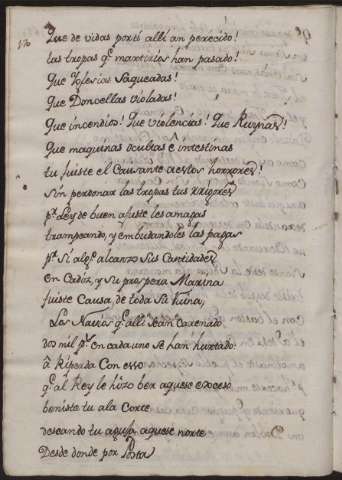 170
Que de vidas por ti alli an perecido!
las tropas q.e martirios han pasado!
Que Iglesias Saqueadas!
Que Doncellas violadas!
Que incendios! Que violencias! Que Ruynas!
Que maquinas ocultas ê intestinas
tu fuiste el Causante a estos horrores!
Sin perdonar las tropas tus rigores
p.r Ley de buen ajuste les amagas
trampeando, y embutandoles las pagas
p.r Si alg.o alcanzo Sus Cantidades
en Cadiz, y Su prospera Marina
fuiste Causa, de toda Su ruina,
Los Navios q.e alli Sean Carenado
dos mil p.s en cada uno se han hurtado:
â Riperda Con esso
q.e al Rey le hizo ber aquese exceso
beniste tu ala Corte
deseando tu aguja aquese norte
Desde donde por Postas